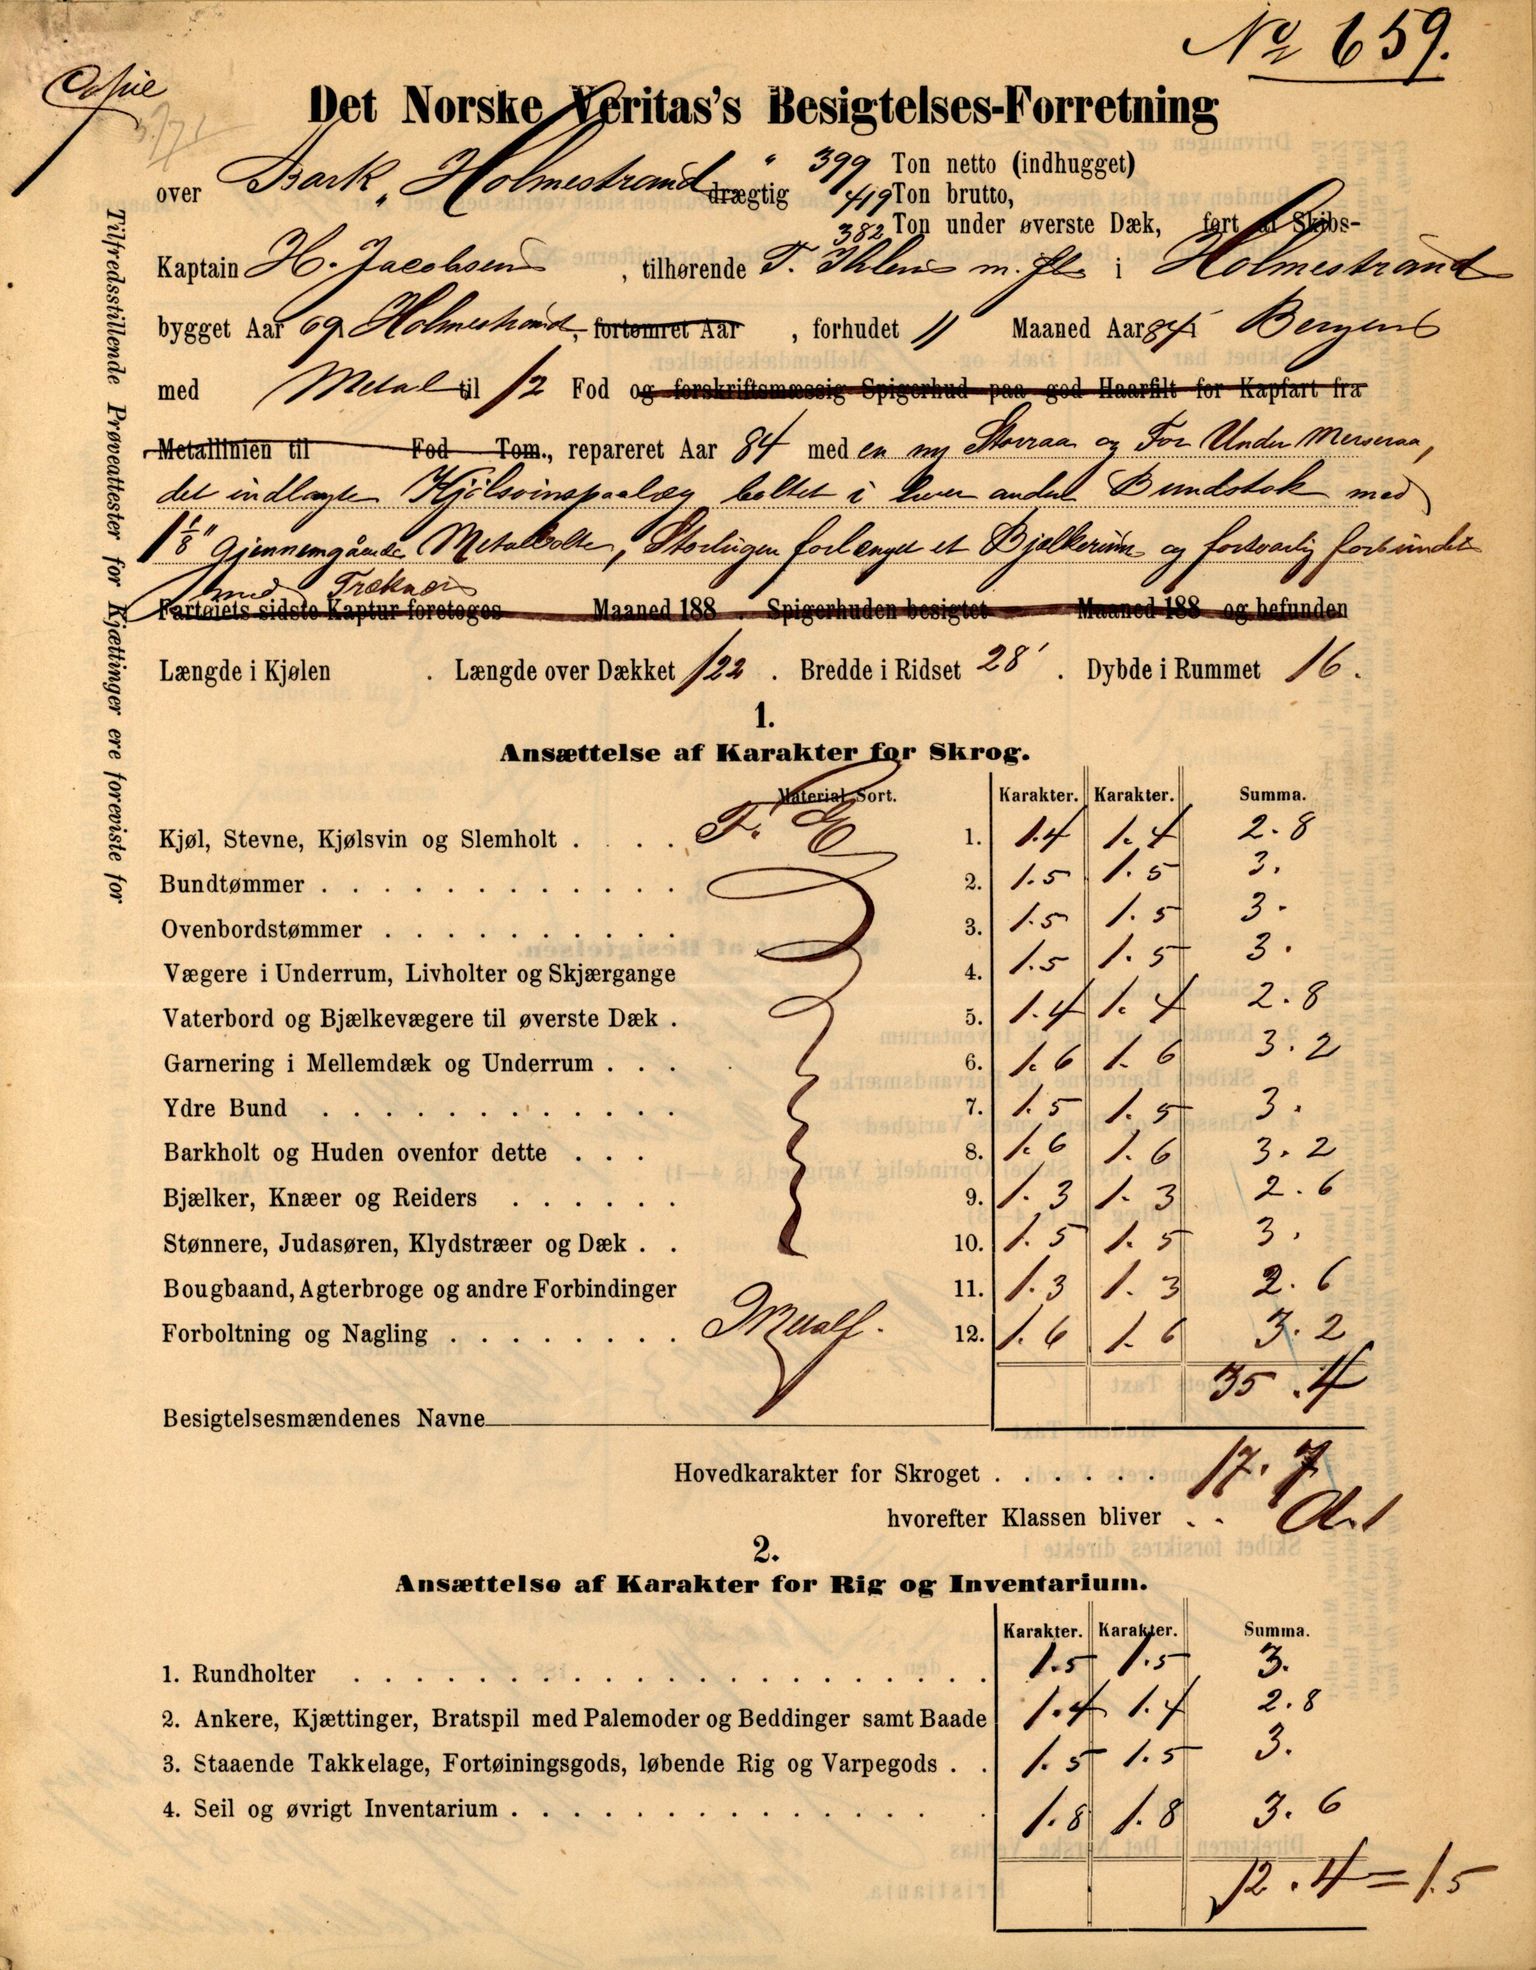 No 659.
Copie
Det Norske Veritas's Besigtelses-Forretning
over Bark „Holmestrand" drægtig 399 Ton netto (indhugget)
419 Ton brutto,
382 Ton under øverste Dæk, ført af Skibs-
Kaptain H. Jacobsen, tilhørende T. Ihlen m. fl. i Holmestrand
bygget Aar 69 Holmestrand, fortømret Aar , forhudet 11 Maaned Aar 84 i Bergen
med Metal til 12 Fod og forskriftsmæssig Spigerhud paa god Haarfilt for Kapfart fra
Metallinien til Fod Tom., repareret Aar 84 med en ny Storraa og For Under Merseraa,
det indlagte Kjølsvinspaalæg boltet i hver anden Bundstok med
1 1/8" gjennemgående Metalbolte, Storlugen forlænget et Bjelkerum og forsvarlig forbundet
med Træknær
Fartøiets sidste Kaptur foretoges Maaned 188 . Spigerhuden besigtet Maaned 188 og befunden
Længde i Kjølen . Længde over Dækket 122 . Bredde i Ridset 28' . Dybde i Rummet 16 .
Tilfredsstillende Prøveattester for Kjættinger ere foreviste for
1.
Ansættelse af Karakter for Skrog.
Material-Sort. Karakter. Karakter. Summa.
Kjøl, Stevne, Kjølsvin og Slemholt . . . . F. E 1. 1.4 1.4 2.8
Bundtømmer . . . . . . . . . . . . 2. 1.5 1.5 3.
Ovenbordstømmer . . . . . . . . . . 3. 1.5 1.5 3.
Vægere i Underrum, Livholter og Skjærgange 4. 1.5 1.5 3.
Vaterbord og Bjælkevægere til øverste Dæk . 5. 1.4 1.4 2.8
Garnering i Mellemdæk og Underrum . . . 6. 1.6 1.6 3.2
Ydre Bund . . . . . . . . . . . . 7. 1.5 1.5 3.
Barkholt og Huden ovenfor dette . . . 8. 1.6 1.6 3.2
Bjælker, Knæer og Reiders . . . . . . 9. 1.3 1.3 2.6
Stønnere, Judasøren, Klydstræer og Dæk . . 10. 1.5 1.5 3.
Bougbaand, Agterbroge og andre Forbindinger 11. 1.3 1.3 2.6
Forboltning og Nagling . . . . . . . . 12. 1.6 1.6 3.2
35.4
Besigtelsesmændenes Navne
Hovedkarakter for Skroget . . . . . . 17.7
hvorefter Klassen bliver . . A.1
2.
Ansættelse af Karakter for Rig og Inventarium.
Karakter. Karakter. Summa.
1. Rundholter . . . . . . . . . . . . . . . . . . 1.5 1.5 3.
2. Ankere, Kjættinger, Bratspil med Palemoder og Beddinger samt Baade 1.4 1.4 2.8
3. Staaende Takkelage, Fortøiningsgods, løbende Rig og Varpegods . . 1.5 1.5 3.
4. Seil og øvrigt Inventarium . . . . . . . . . . . . . 1.8 1.8 3.6
12.4 = 1.5